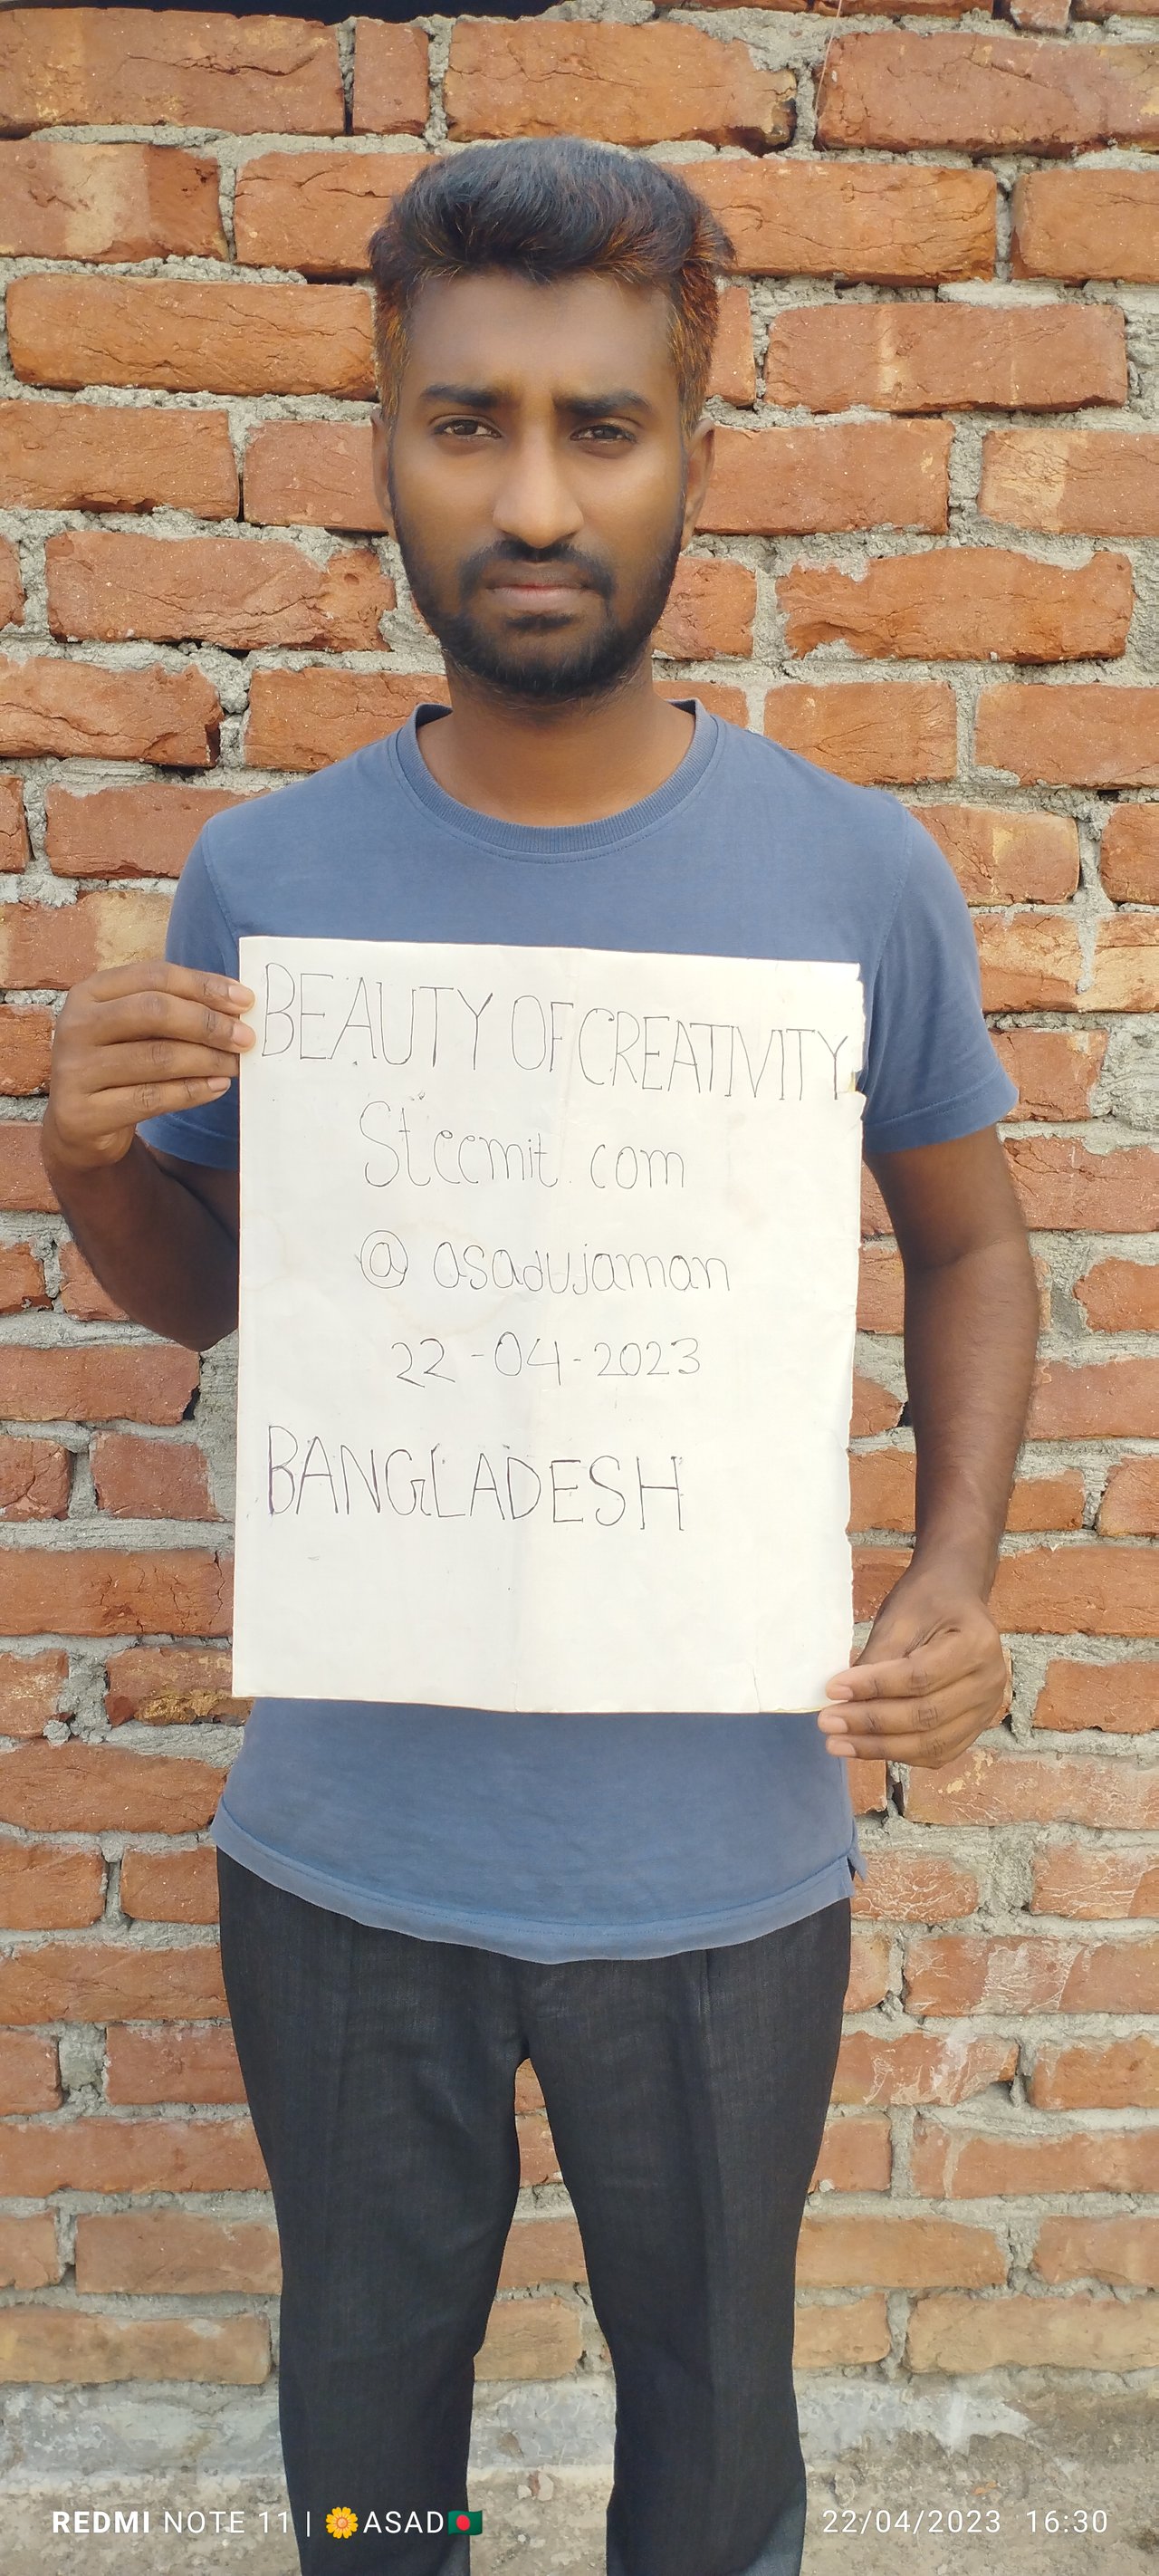 BEAUTY OF CREATIVITY
Steemit.com
@ asadujaman
22-04-2023
BANGLADESH
REDMI NOTE 11 | 🌼ASAD🇧🇩
22/04/2023 16:30